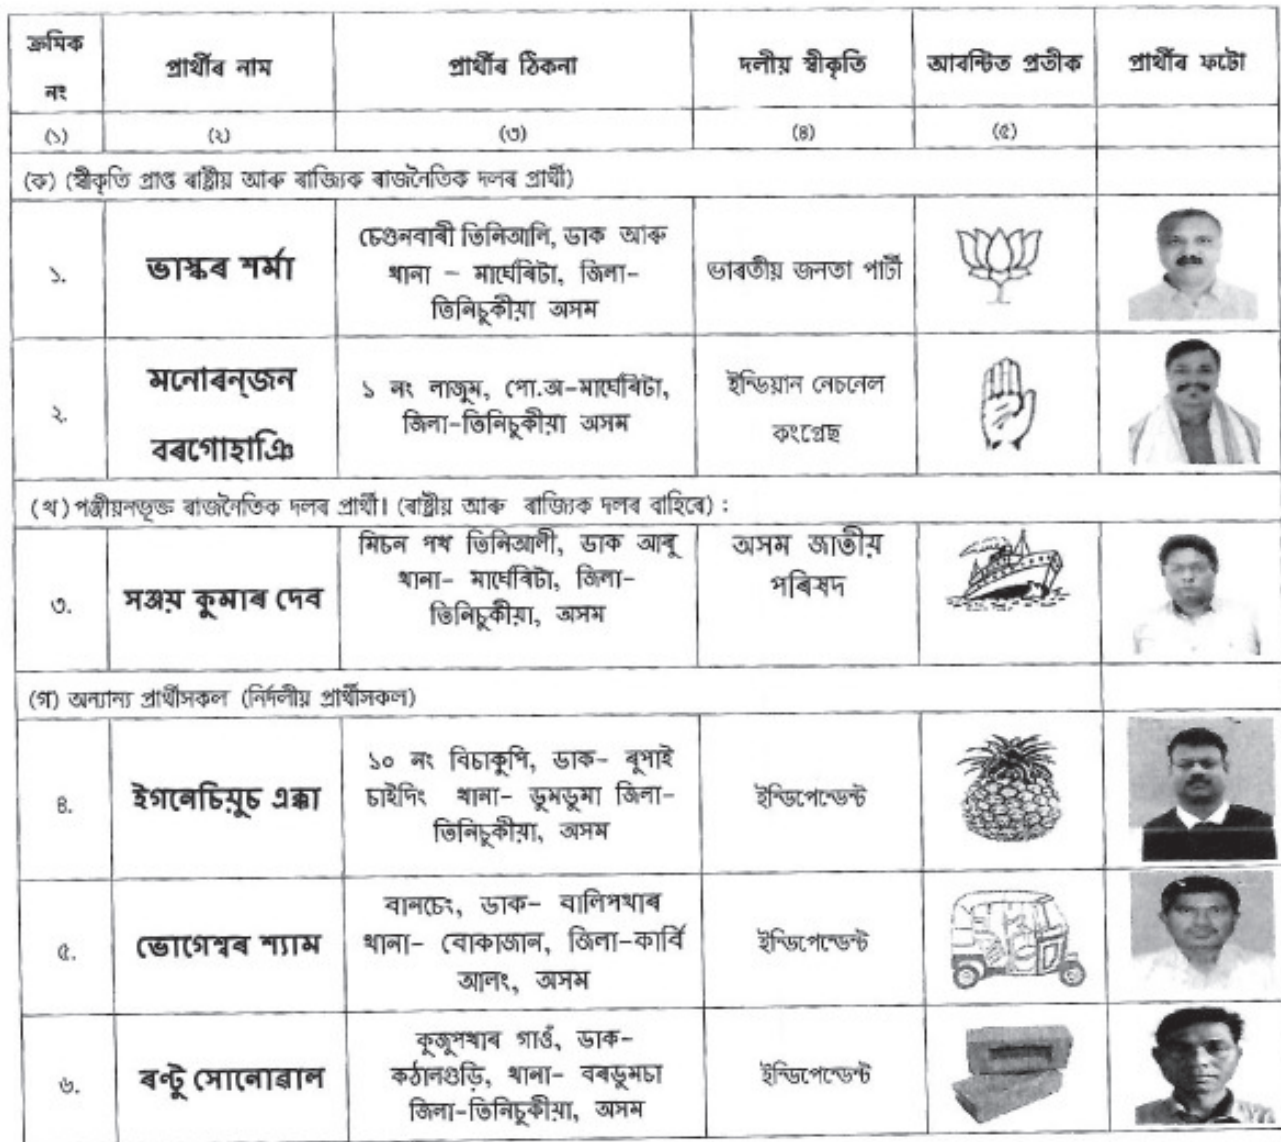 ক্ৰমিক
নং
প্ৰাৰ্থীৰ নাম
প্ৰাৰ্থীৰ ঠিকনা
দলীয় স্বীকৃতি
আবন্টিত প্ৰতীক
প্ৰাৰ্থীৰ ফটো
(১)
(২)
(৩)
(৪)
(৫)
(ক) (স্বীকৃতি প্ৰাপ্ত ৰাষ্ট্ৰীয় আৰু ৰাজ্যিক ৰাজনৈতিক দলৰ প্ৰাৰ্থী)
১.
ভাস্কৰ শৰ্মা
চেগুনবাৰী তিনিআলি, ডাক আৰু
থানা – মাৰ্ঘেৰিটা, জিলা-
তিনিচুকীয়া অসম
ভাৰতীয় জনতা পাৰ্টী
২.
মনোৰন্‌জন
বৰগোহাঞি
১ নং লাজুম, পো.অ-মাৰ্ঘেৰিটা,
জিলা-তিনিচুকীয়া অসম
ইন্ডিয়ান নেচনেল
কংগ্ৰেছ
(খ) পঞ্জীয়নভূক্ত ৰাজনৈতিক দলৰ প্ৰাৰ্থী। (ৰাষ্ট্ৰীয় আৰু ৰাজ্যিক দলৰ বাহিৰে) :
৩.
সঞ্জয় কুমাৰ দেব
মিচন পথ তিনিআলী, ডাক আৰূ
থানা- মাৰ্ঘেৰিটা, জিলা-
তিনিচুকীয়া, অসম
অসম জাতীয়
পৰিষদ
(গ) অন্যান্য প্ৰাৰ্থীসকল (নিৰ্দলীয় প্ৰাৰ্থীসকল)
৪.
ইগনেচিয়ুচ এক্কা
১০ নং বিচাকুপি, ডাক- ৰূপাই
চাইদিং থানা- ডুমডুমা জিলা-
তিনিচুকীয়া, অসম
ইন্ডিপেন্ডেন্ট
৫.
ভোগেশ্বৰ শ্যাম
বানচেং, ডাক- বালিপথাৰ
থানা- বোকাজান, জিলা-কাৰ্বি
আলং, অসম
ইন্ডিপেন্ডেন্ট
৬.
ৰণ্টু সোনোৱাল
কূজুপথাৰ গাওঁ, ডাক-
কঠালগুড়ি, থানা- বৰডুমচা
জিলা-তিনিচুকীয়া, অসম
ইন্ডিপেন্ডেন্ট